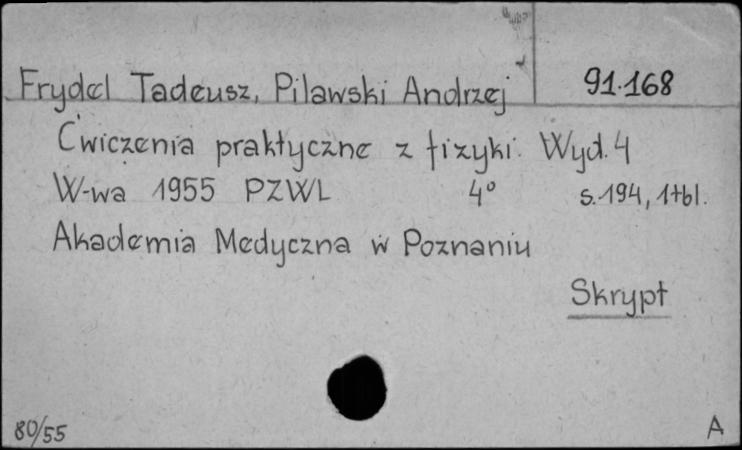 Frydel Tadeusz, Pilawski Andrzej 91.168
Ćwiczenia praktyczne z fizyki. Wyd. 4
W-wa 1955 PZWL 4° s. 194, 1 tbl.
Akademia Medyczna w Poznaniu
Skrypt
80/55 A